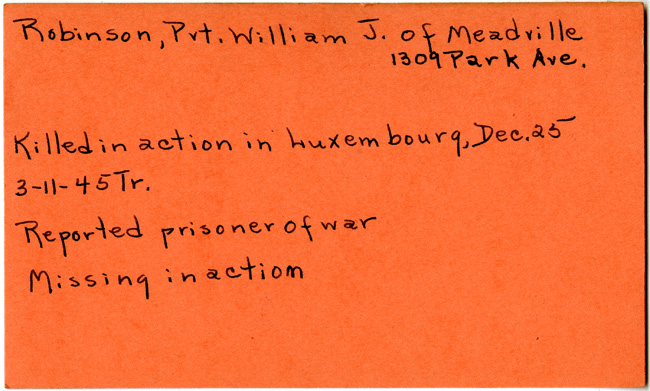 Robinson, Pvt. William J. of Meadville
1309 Park Ave.
Killed in action in Luxembourg, Dec. 25
3-11-45 Tr.
Reported prisoner of war
Missing in action